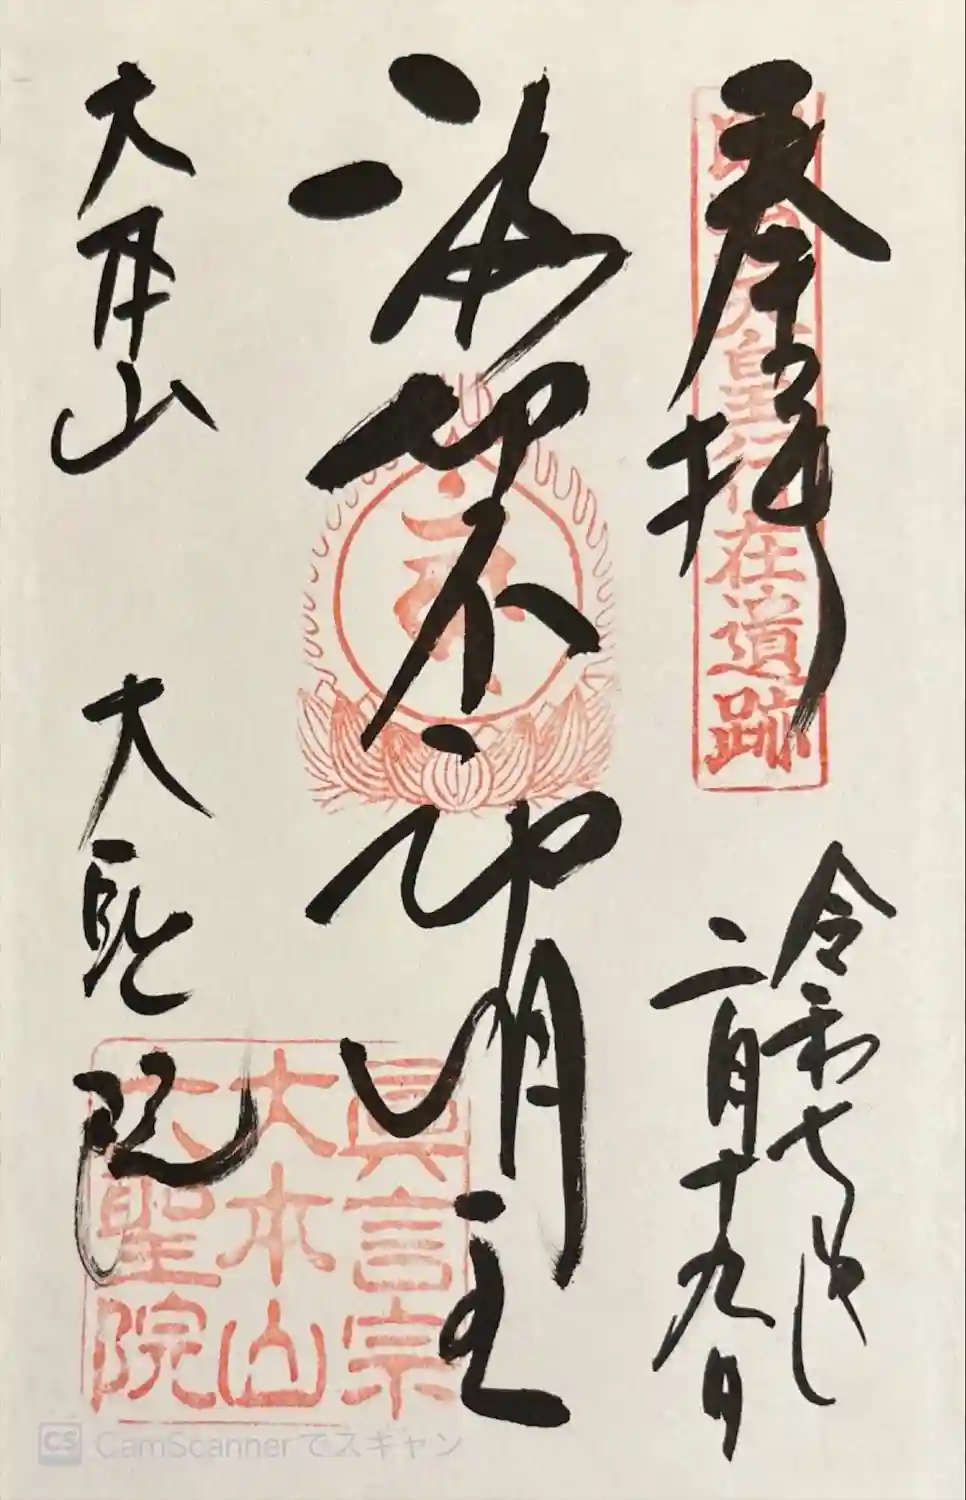 奉拝
明治天皇行在道跡
令和七年
二月十九日
波切不動明王
大本山
大聖院
眞言宗
大本山
大聖院
CS CamScannerでスキャン